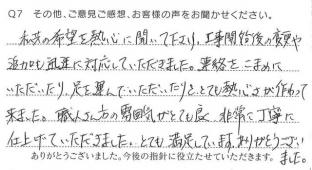 Q7 その他、ご意見ご感想、お客様の声をお聞かせください。
私共の希望を熱心に聞いて下さり、工事開始後の変更や
追加も迅速に対応していただきました。連絡をこまめに
いただいたり、足を運んでいただいたりと、とても熱心さが伝わって
来ました。職人さん方の雰囲気がとても良く非常に丁寧に
仕上げていただきました。とても満足しています。ありがとうござい
ました。
ありがとうございました。今後の指針に役立たせていただきます。